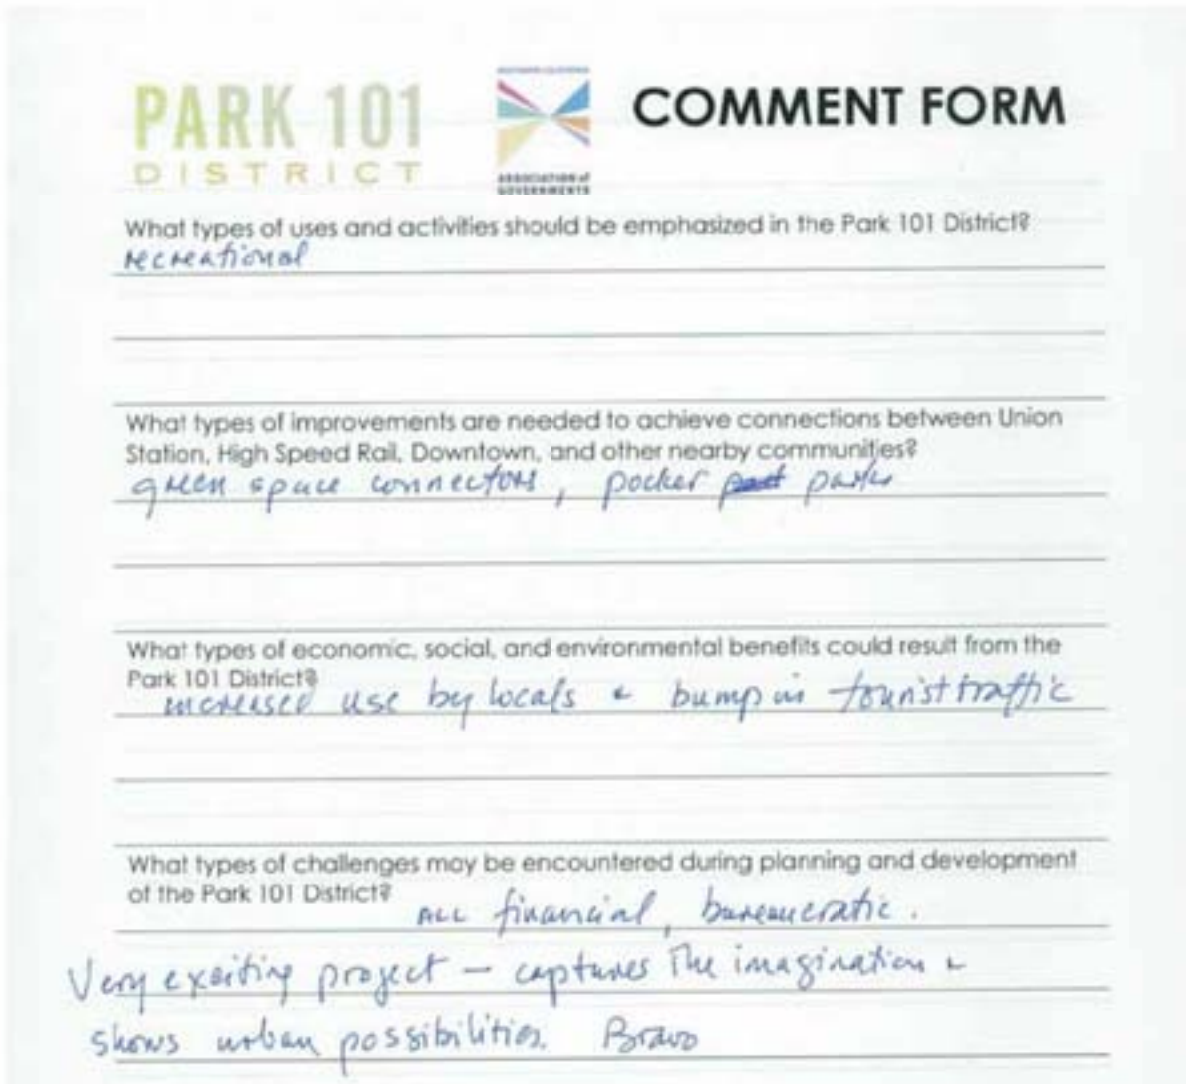 PARK 101
DISTRICT
SOUTHERN CALIFORNIA
ASSOCIATION of
GOVERNMENTS
COMMENT FORM
What types of uses and activities should be emphasized in the Park 101 District?
recreational
What types of improvements are needed to achieve connections between Union
Station, High Speed Rail, Downtown, and other nearby communities?
green space connectors, pocket parks
What types of economic, social, and environmental benefits could result from the
Park 101 District?
increased use by locals & bump in tourist traffic
What types of challenges may be encountered during planning and development
of the Park 101 District?
ALL financial, bureaucratic.
Very exciting project — captures the imagination &
shows urban possibilities. Bravo